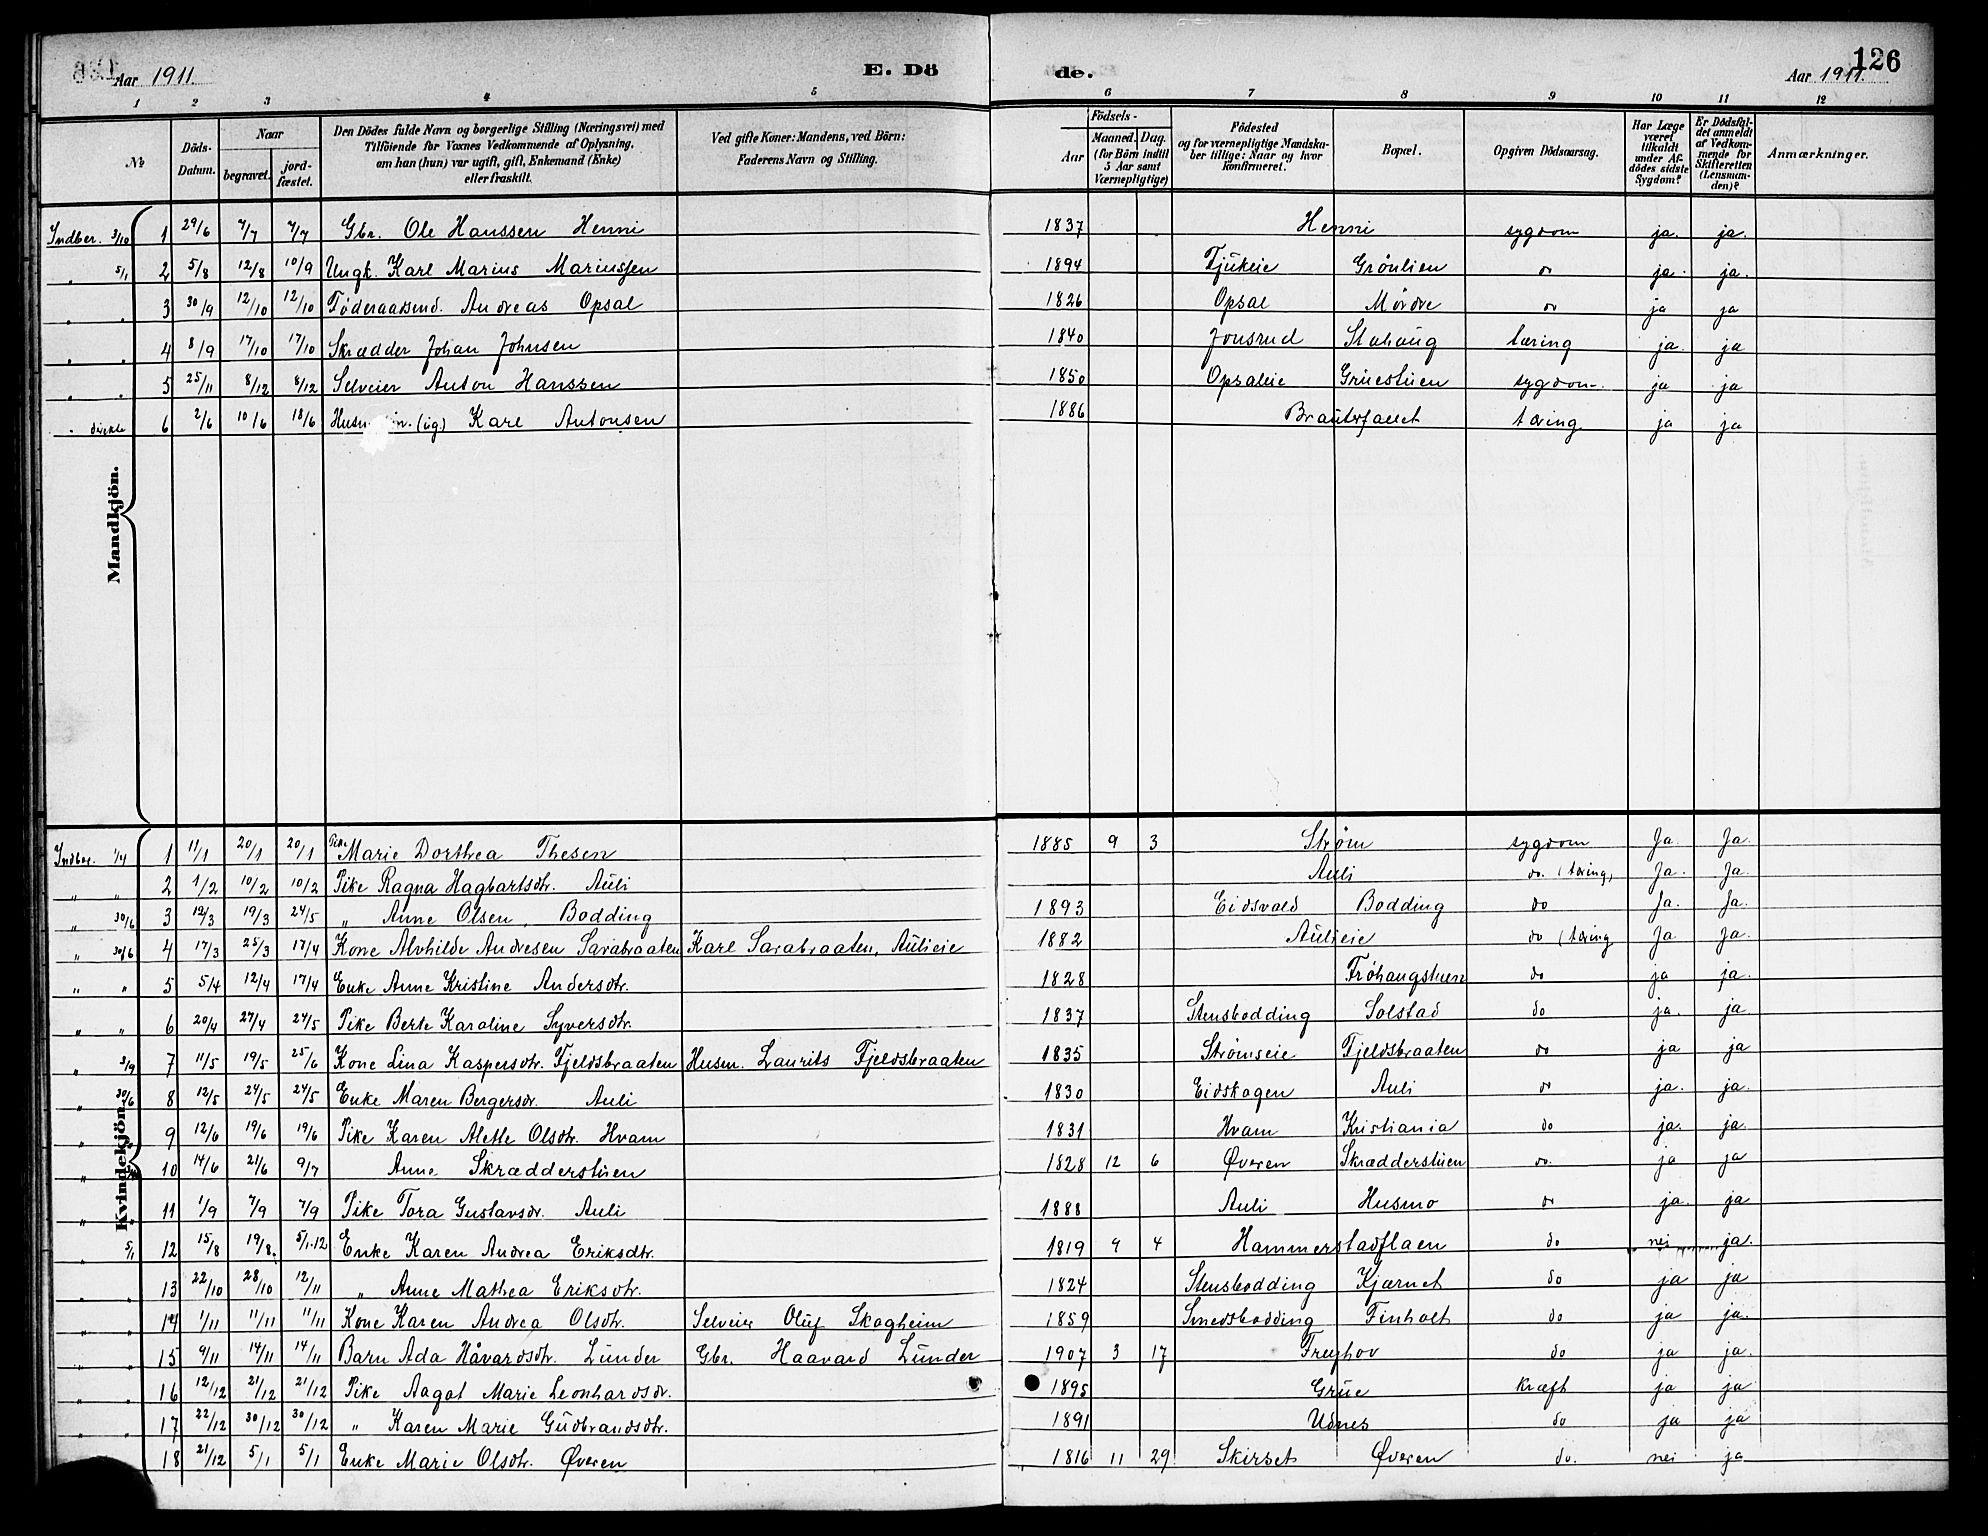 Aar 1911. E. Dö de. Aar 1911. 126
1 2 3 4 5 6 7 8 9 10 11 12
№ Döds-Datum. Naar begravet. jord-fæstet. Den Dödes fulde Navn og borgerlige Stilling (Næringsvei) med Tilföiende for Voxnes Vedkommende af Oplysning, om han (hun) var ugift, gift, Enkemand (Enke) eller fraskilt. Ved gifte Koner: Mandens, ved Börn: Faderens Navn og Stilling. Födsels- Aar Maaned. Dag. (for Börn indtil 5 Aar samt Værnepligtige) Födested og for værnepligtige Mandskaber tillige: Naar og hvor konfirmeret. Bopæl. Opgiven Dödsaarsag. Har Læge været tilkaldt under Afdödes sidste Sygdom? Er Dödsfaldet anmeldt af Vedkommende for Skifteretten (Lensmanden)? Anmærkninger.
Mandkjön.
Indber. 3/10 1 29/6 7/7 7/7 Gbr. Ole Hanssen Henni 1837 Henni sygdom ja. ja.
" 5/1 2 5/8 12/8 10/9 Ungk. Karl Marius Mariussen 1894 Fjukeie Grönlien do ja. ja.
" " 3 30/9 12/10 12/10 Föderaadsmd. Andreas Opsal 1826 Opsal Mördre do ja ja
" " 4 8/9 17/10 17/10 Skrædder Johan Johnsen 1840 Jonsrud Stahaug tæring ja. ja
" " 5 25/11 8/12 8/12 Selveier Anton Hanssen 1850 Opsaleie Gruestuen sygdom. ja ja
" direkte 6 2/6 10/6 18/6 (ug) Karl Antonsen 1886 Brauterfallet tæring ja ja
Kvindekjön.
Indber. 1/4 1 11/1 20/1 20/1 Pike Marie Dorthea Thesen 1885 9 3 Strøm sygdom Ja. Ja.
" " 2 1/2 10/2 10/2 Pike Ragna Hagbartsdtr. Auli Auli do. (tæring) Ja. Ja.
" 30/6 3 12/3 19/3 24/5 " Anne Olsen, Bodding 1893 Eidsvold Bodding do Ja. Ja.
" 30/6 4 17/3 25/3 17/4 Kone Alvhilde Andresen Sarabraaten Karl Sarabraaten, Aulieie 1882 Aulieie do (tæring Ja Ja.
" " 5 5/4 12/4 17/4 Enke Anne Kristine Andersdtr. 1828 Fröhaugstuen do ja ja.
" " 6 20/4 27/4 24/5 Pike Berte Karoline Syversdtr. 1837 Stensbodding Solstad do ja. ja.
" 3/9 7 11/5 19/5 25/6 Kone Lina Kaspersdtr. Fjeldsbraaten Husm. Laurits Fjeldsbraaten 1835 Strømseie Fjeldsbraaten do ja ja
" 30/6 8 12/5 24/5 24/5 Enke Maren Bergersdr. Auli 1830 Eidskogen Auli do ja. ja.
" 9 12/6 19/6 19/6 Pike Karen Alette Olsdtr. Hvam 1831 Hvam Kristiania do ja. ja.
" 10 14/6 21/6 9/7 Anne Skrædderstuen 1828 12 6 Øveren Skrædderstuen do. ja ja
" " 11 1/9 7/9 7/9 Pike Tora Gustavsdr. Auli 1888 Auli Husmo do ja. ja
" 5/1 12 15/8 19/8. 5/1-12 Enke Karen Andrea Eriksdtr. 1819 9 4 Hammerstadflaen do nei ja.
" " 13 22/10 28/10 12/11 " Anne Mathea Eriksdtr. 1824 Stensbodding Kjærnet do ja ja
" " 14 1/11 11/11 11/11 Kone Karen Andrea Olsdtr. Selveier Oluf Skogheim 1859 Smedsbodding Finholt do ja ja.
" " 15 9/11 14/11 14/11 Barn Ada Håvardsdtr. Lunder Gbr. Haavard Lunder 1907 3 17 Freyhov do ja ja.
" " 16 12/12 21/12 21/12 Pike Aagot Marie Leonhardsdr. 1895 Grue kræft ja ja
" " 17 22/12 30/12 30/12 " Karen Marie Gudbrandsdtr. 1891 Udnes do ja ja
18 21/12 5/1 5/1 Enke Marie Olsdtr. Øveren 1816 11 29 Skirset Øveren do. nei ja